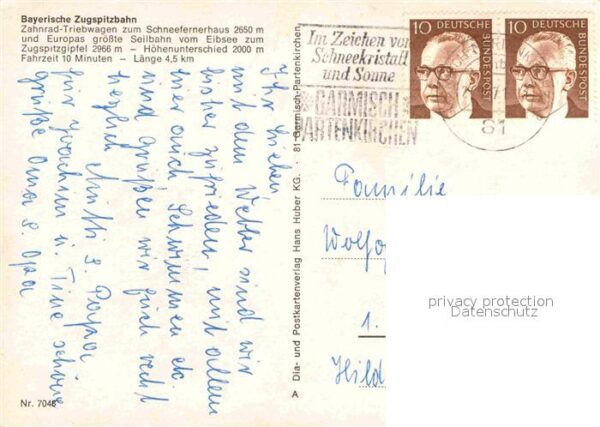 Bayerische Zugspitzbahn
Zahnrad-Triebwagen zum Schneefernerhaus 2650 m
und Europas größte Seilbahn vom Eibsee zum
Zugspitzgipfel 2966 m - Höhenunterschied 2000 m
Fahrzeit 10 Minuten - Länge 4,5 km
Ihr Lieben,
mit dem Wetter sind wir
bisher zufrieden, mit allem
hier auch Schwimmen etc.
und grüßen wir Euch recht
herzlich Mutti & Papa
für Joachim u. Tine schöne
Grüße Oma & Opa
Nr. 7048
A Dia- und Postkartenverlag Hans Huber KG. · 81 Garmisch-Partenkirchen
Im Zeichen von
Schneekristall
und Sonne
GARMISCH
PARTENKIRCHEN
10 DEUTSCHE BUNDESPOST
10 DEUTSCHE BUNDESPOST
81
Familie
Wolfg
1.
Hild
privacy protection
Datenschutz